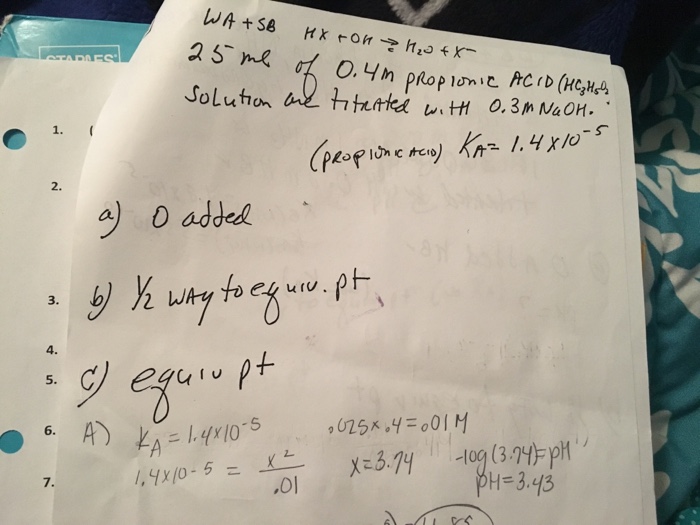 WA + SB HX + OH ⇌ H₂O + X⁻
STAPLES
25 ml of 0.4M PROPIONIC ACID (HC₃H₅O₂)
Solution are titrated with 0.3M NaOH.
1.
(PROPIONIC ACID) KA = 1.4 x 10⁻⁵
2.
a) 0 added
3. b) ½ way to equiv. pt
4.
5. c) equiv pt
6. A) KA = 1.4x10⁻⁵ .025 x .4 = .01 M
7. 1.4x10-5 = x²/.01 x = 3.74 -log(3.74) = pH
pH = 3.43